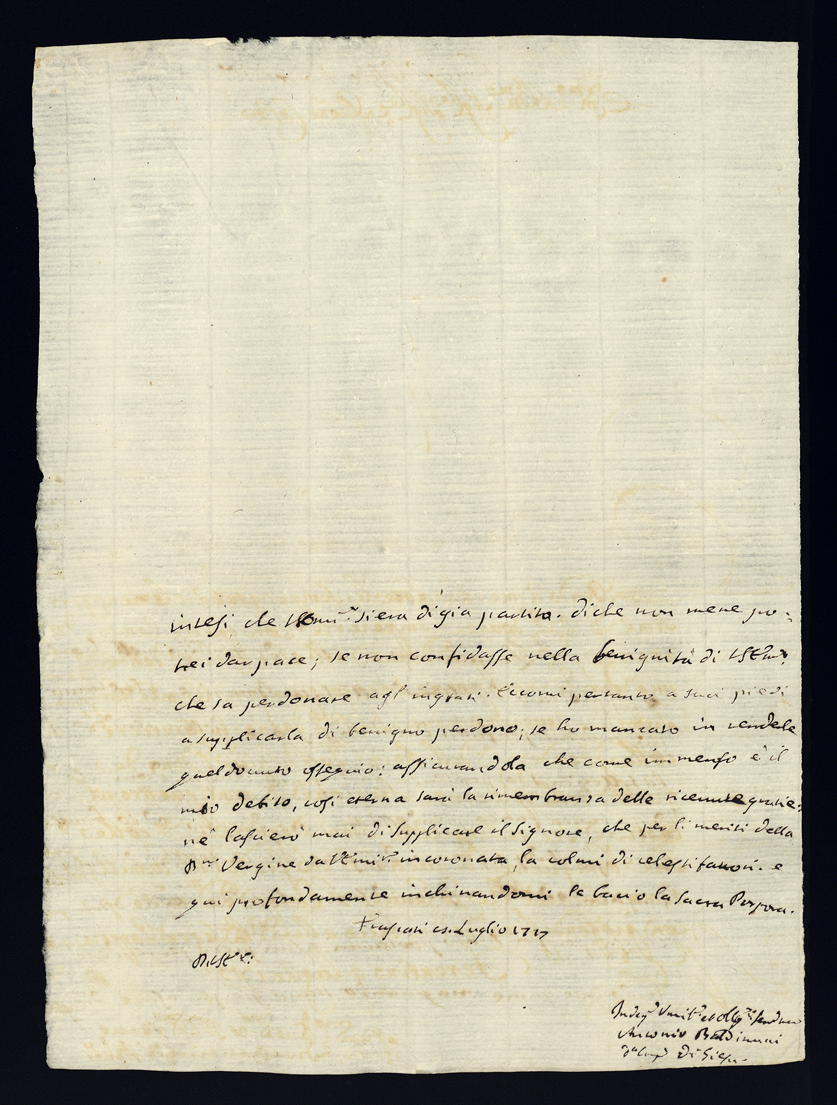 intesi, che l'Emi.ª si era di gia partita. di che non me ne po=
trei dar pace; se non confidasse nella benignità di V. Em.ª
che sa perdonare agl'ingrati. Eccomi pertanto a suoi piedi
a supplicarla di benigno perdono; se ho mancato in renderle
quel dovuto ossequio: assicurandola che come immenso è il
mio debito, così eterna sarà la rimembranza delle ricevute grazie:
nè lascierò mai di supplicare il Signore, che per li meriti della
B.ma Vergine da V. Emi.ª incoronata, la colmi di celesti favori. e
qui profondamente inchinandomi le bacio la Sacra Porpora.
Frascati Luglio 1717
Indeg.º Umil.º et obblg.º servidore
Antonio Baldinucci
di Giesu